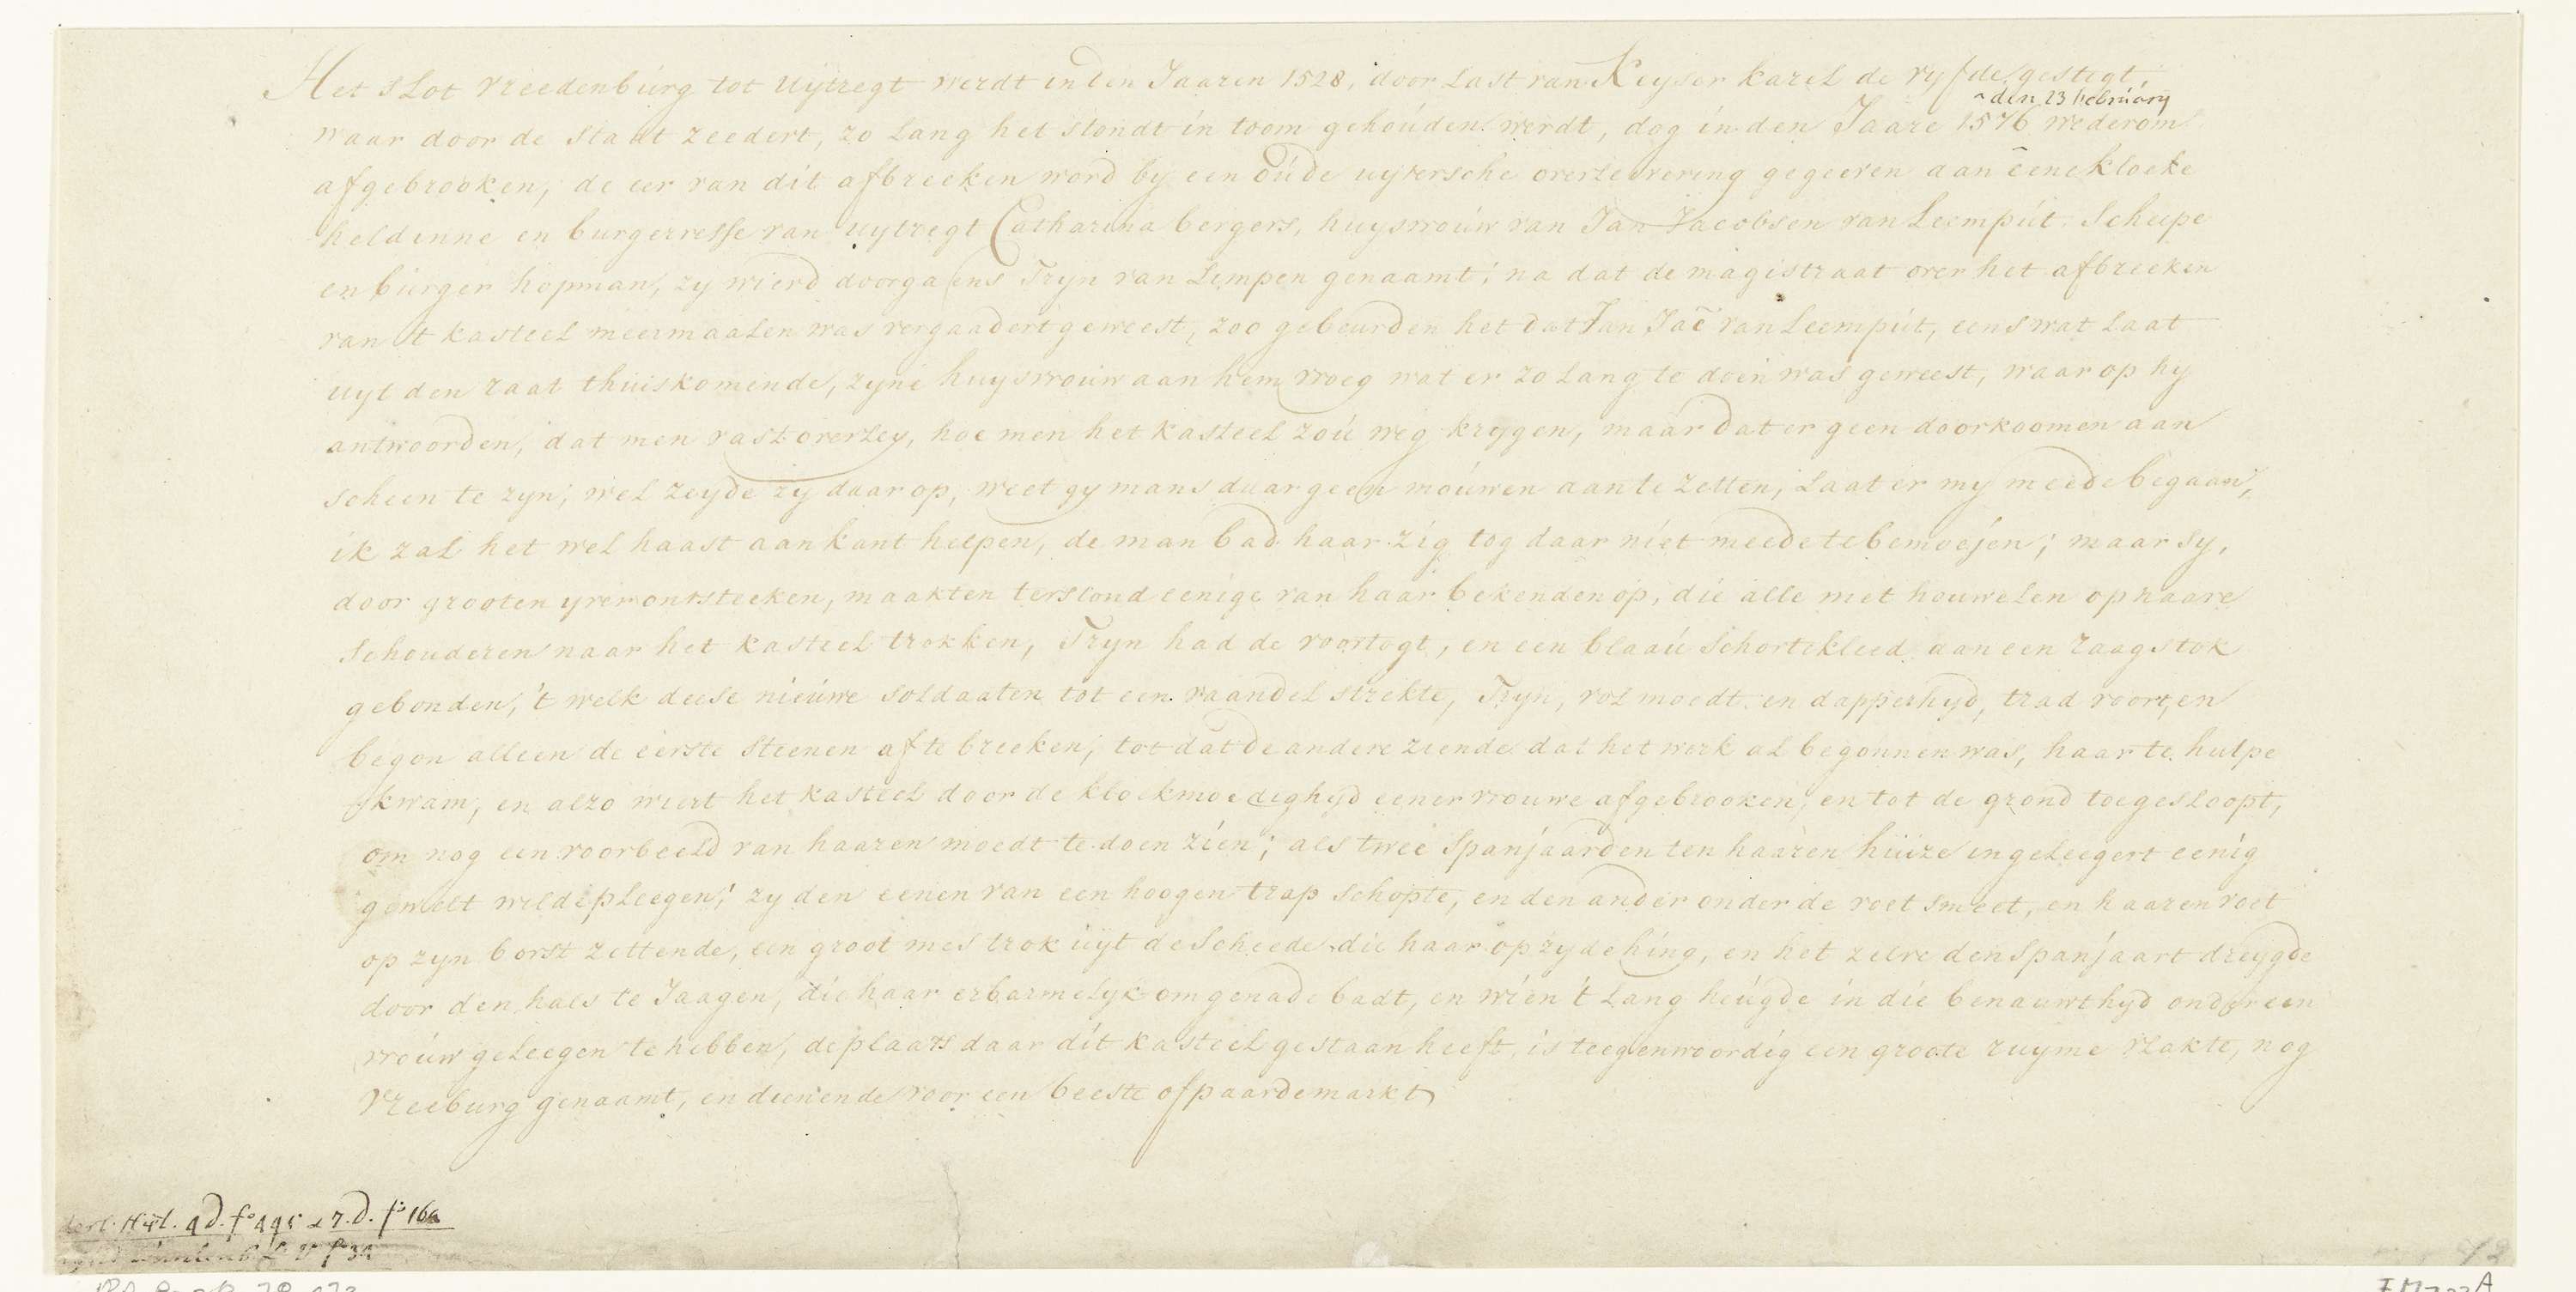 Het slot vreedenburg tot uytregt werdt in den Jaaren 1528, door last van Keyser karel de vyfde gestigt,
^ den 23 february
waar door de stadt zeedert, zo lang het stondt in toom gehouden werdt, dog in den Jaare 1576 wederom
afgebrooken, de eer van dit afbreeken word by een oude uytersche overleevering gegeeven aan eene kloeke
heldinne en burgerresse van uytregt Catharina bergers, huysvrouw van Jan Jacobsen van Leemput. Scheepe
en burger hopman, zy wierd doorgaens Tryn van Lempen genaamt; na dat de magistraat over het afbreeken
van 't kasteel meermaalen was vergaadert geweest, zoo gebeurden het dat Jan Jac̄ van Leemput, eens wat laat
uyt den raat thuiskomende, zyne huysvrouw aan hem vroeg wat er zo lang te doen was geweest, waar op hy
antwoorden, dat men vast overley, hoe men het kasteel zou weg krygen, maar dat er geen doorkoomen aan
scheen te zyn; wel zeyde zy daar op, weet gy mans daar geen mouwen aan te zetten, laat er my meede begaan,
ik zal het wel haast aan kant helpen, de man bad haar zig tog daar niet meede te bemoejen; maar sy,
door grooten yver ontsteeken, maakten terstond eenige van haar bekenden op, die alle met houwelen op haare
schouderen naar het kasteel trokken, Tryn had de voortogt, en een blaau schortekleed aan een raagstok
gebonden, 't welk deese nieuwe soldaaten tot een vaandel strekte, Tryn, vol moedt en dapperhyd, trad voort, en
begon alleen de eerste steenen af te breeken, tot dat de andere ziende dat het werk al begonnen was, haar te hulpe
kwam, en alzo wiert het kasteel door de kloekmoedighyd eener vrouwe afgebrooken, en tot de grond toe gesloopt,
om nog een voorbeeld van haaren moedt te doen zien; als twee Spanjaarden ten haaren huize ingeleegert eenig
gewelt wilde pleegen, zy den eenen van een hoogen trap schopte, en den ander onder de voet smeet, en haaren voet
op zyn borst zettende, een groot mes trok uyt de scheede die haar op zyde hing, en het zelve den spanjaart dreygde
door den hals te Jaagen, die haar erbarmelyk om genade badt, en wien 't lang heugde in die benauwthyd onder een
vrouw geleegen te hebben, de plaats daar dit kasteel gestaan heeft, is teegenwoordig een groote ruyme vlakte, nog
Vreeburg genaamt, en dienende voor een beeste of paardemarkt
Hist. 4 d. f° 495 & 7. d. f° 164
f° 34